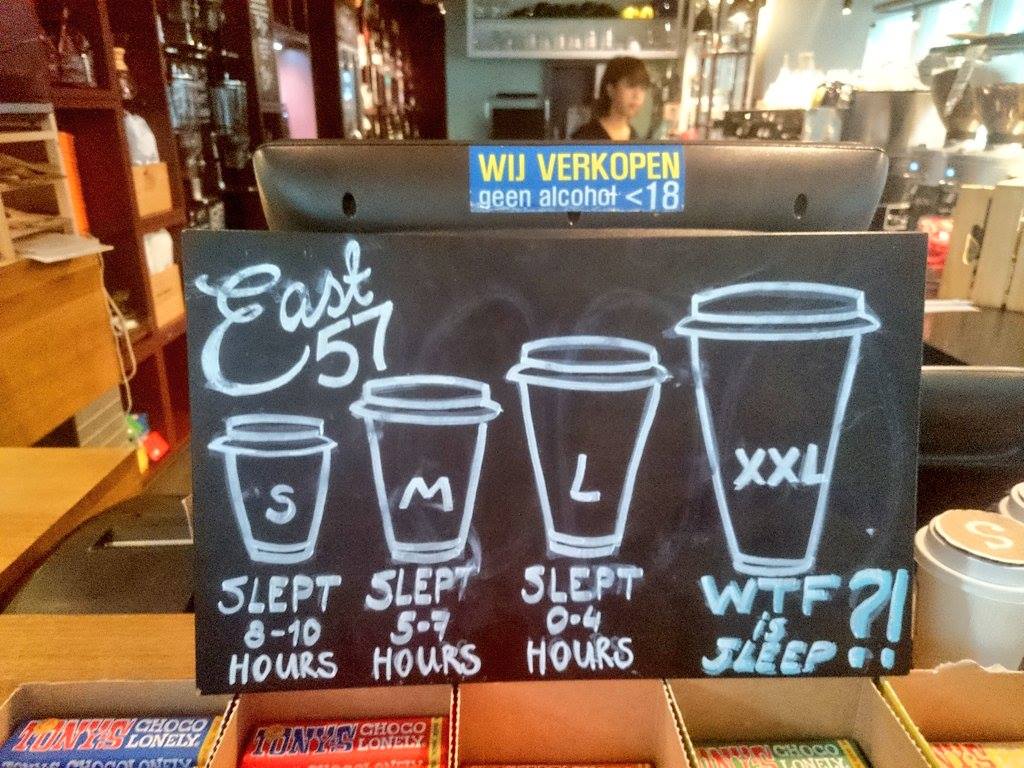 WIJ VERKOPEN
geen alcohol <18
East
57
S
M
L
XXL
SLEPT
8-10
HOURS
SLEPT
5-7
HOURS
SLEPT
0-4
HOURS
WTF
is
SLEEP
?!
S
TONY'S CHOCO
LONELY.
TONY'S CHOCO
LONELY.
TONY'S CHOCO
LONELY.